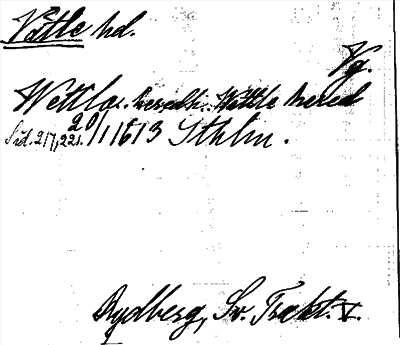 Vättle hd.
Vg.
Wettla. heredh. Wettle hered
Sid. 217, 221. 20/1 1613 Sthlm.
Rydberg, Sv. Trakt. V.